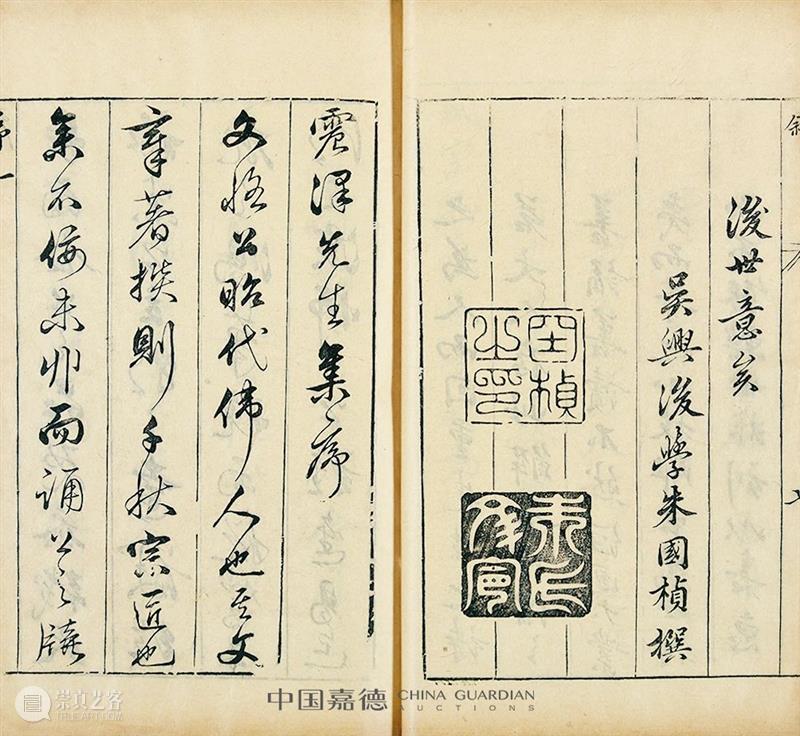 後世意矣
吳興後學朱國楨撰
囯楨之印
朱氏文寧
震澤先生集序
文恪公昭代偉人也其文
章著撰則千秋宗匠也
余不佞未丱而誦公之牘
序一
中国嘉德
CHINA GUARDIAN
AUCTIONS
崇真艺客
TRUEART.COM